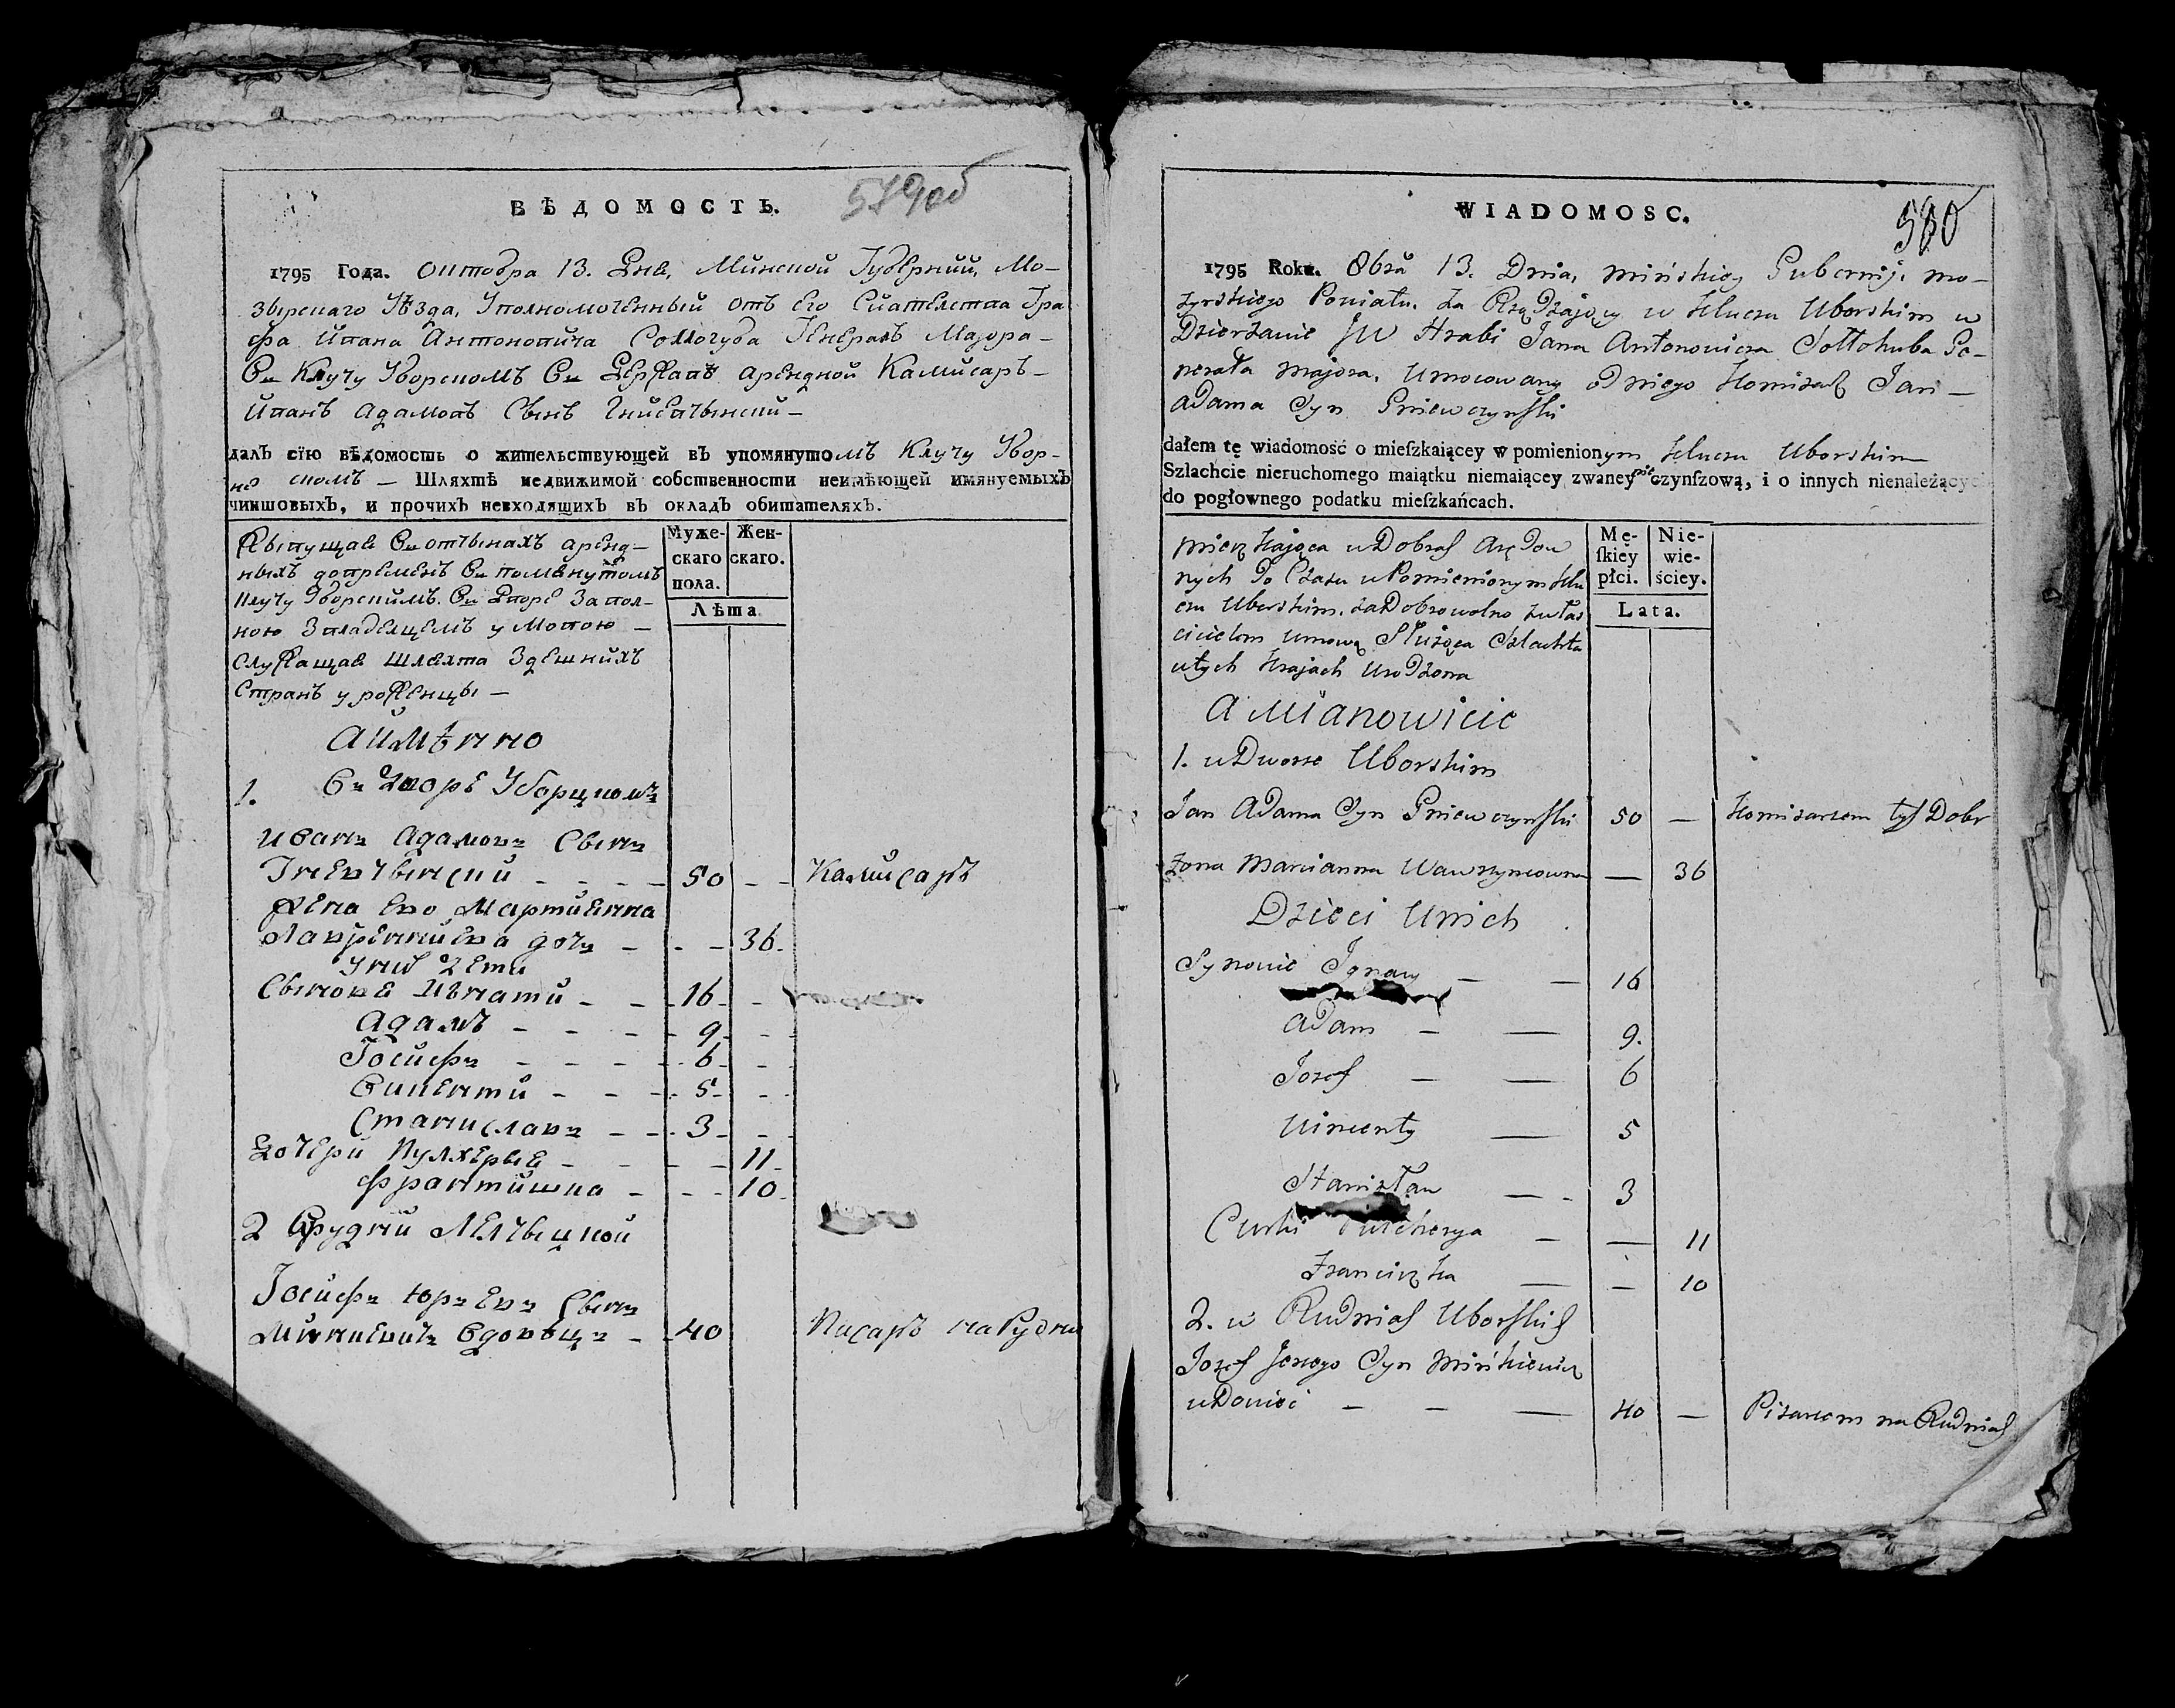 ВѢДОМОСТЬ.
579об
1795 Года. Октобра 13. Дня, Минской Губернии, Мо-
зырскаго Уѣзда, Уполномоченный отъ его Сиателства Гра
фа Ивана Антоновича Соллогуба Генералъ Маэора -
Въ Ключу Уборскомъ Въ Держапѣ арендной Камисаръ -
Иванъ Адамовъ Сынъ Гниевчынски -
далъ сїю вѣдомость о жительствующей въ упомянутомъ Ключу Убор-
скомъ - Шляхтѣ недвижимой собственности неимѣющей имянуемыхъ
чиншовыхъ, и прочихъ невходящихъ въ окладъ обитателяхъ.
Муже- Жен-
скаго скаго.
пола.
Лѣта
Живущая Въ отчынахъ аренд-
ныхъ довремѣнъ Въ помѣнутомъ
Ключу Уборскимъ. Въ Дворѣ За вол-
ною Звладелцемъ умовою -
служащая шляхта Здешнихъ
Странъ уроженцы -
Аимѣнно
1. Въ Дворѣ Уборцкомъ
Иванъ Адамовъ Сынъ
Гневчынский - - - - 50 - - Камисаръ
Жена Ево Марцианна
Лаврениева дочь - - - 36.
Унихъ Дети
Сынове Игнати - - - 16 - -
Адамъ - - - - 9 - -
Іосифъ - - - - 6 - -
Викенти - - - 5 - -
Станиславъ - - 3 - -
Дочери Пулхерыя - - - - 11
Франтишка - - - 10
2 Врудни Мелчыцкой
Іосифъ Юрьевъ Сынъ
Минкевичъ Вдовецъ - 40 Писаръ на Рудни
WIADOMOSC.
580
1795 Roku. 8bra 13. Dnia, Minskiey Gubernij, Mo-
zyrskiego Powiatu. Za Rządzaiący w Kluczu Uborskim w
Dzierżawie JW Hrabi Jana Antonowicza Sołłohuba Ge-
nerała Majora, Umocowany od niego Komisarz Jan -
Adama Syn Gniewczynski
dałem tę wiadomość o mieſzkaiącey w pomienionym Kluczu Uborskim
Szlachcie nieruchomego maiątku niemaiącey zwaney czynſzową, i o innych nienależącyc
do pogłownego podatku mieſzkańcach.
Mę- Nie-
ſkiey wie-
płci. ściey.
Lata.
mieszkająca w Dobrach Arędow
nych do Czasu w Pomienionym Klu
czu Uborskim. za Dobrowolną zwłas
cicielem umową Służąca Szlachta
wtych Krajach Urodzona
A Mianowicie
1. w Dworze Uborskim
Jan Adama Syn Gniewczynski 50 - Komisarzem tych Dobr
Żona Marcianna Wawrzyncowna - 36
Dzieci Unich
Synowie Ignacy - - 16
Adam - - 9.
Jozef - - 6
Wincenty - 5
Stanisław - - 3
Curki Pulcherya - - 11
Franciszka - - 10
2. w Rudniach Uborskich
Jozef Jerzego Syn Minkiewicz
wDowiec - - - 40 - Pisarzem na Rudniach